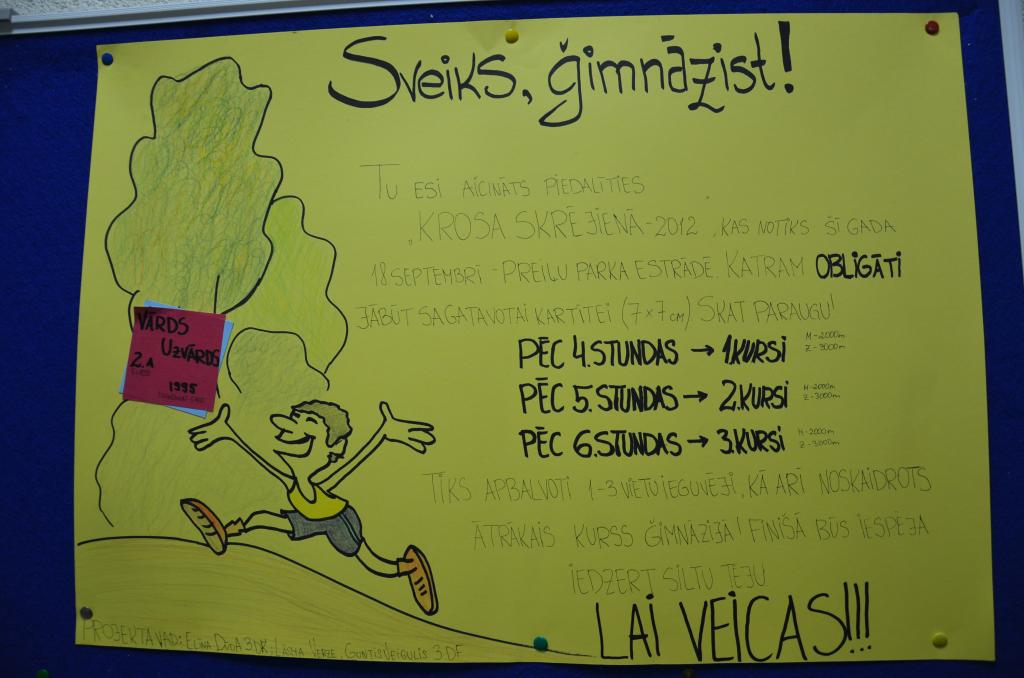 Sveiks, ģimnāzist!
TU ESI AICINĀTS PIEDALĪTIES
„KROSA SKRĒJIENĀ-2012, KAS NOTIKS ŠĪ GADA
18 SEPTEMBRĪ - PREIĻU PARKA ESTRĀDĒ. KATRAM OBLIGĀTI
JĀBŪT SAGATAVOTAI KARTĪTEI (7×7cm) SKAT PARAUGU!
PĒC 4. STUNDAS → 1.KURSI
M-2000m
Z-3000m
PĒC 5. STUNDAS → 2.KURSI
M-2000m
Z-3000m
PĒC 6. STUNDAS → 3.KURSI
M-2000m
Z-3000m
TIKS APBALVOTI 1-3 VIETU IEGUVĒJI, KĀ ARĪ NOSKAIDROTS
ĀTRĀKAIS KURSS ĢIMNĀZIJĀ! FINIŠĀ BŪS IESPĒJA
IEDZERT SILTU TĒJU
LAI VEICAS!!!
VĀRDS
UZVĀRDS
2.A
KURSS
1995
DZIMŠANAS GADS
PROJEKTA VAD: ELĪNA DUDA 3DK, LĀSMA VERZE, GUNTIS VEIGULIS 3.DF